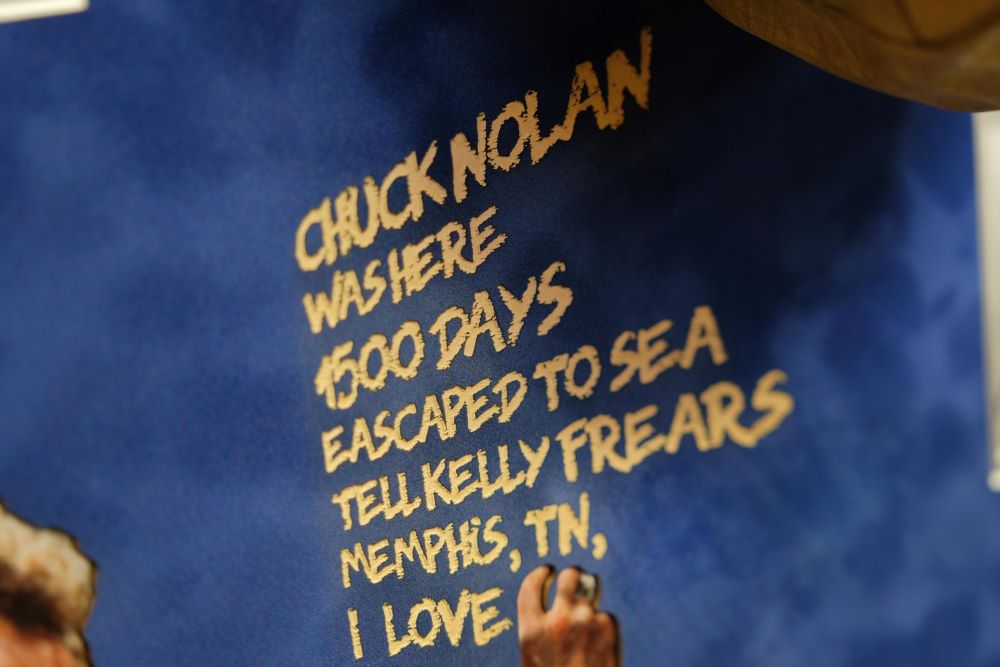 CHUCK NOLAN
WAS HERE
1500 DAYS
EASCAPED TO SEA
TELL KELLY FREARS
MEMPHiS, TN,
I LOVE